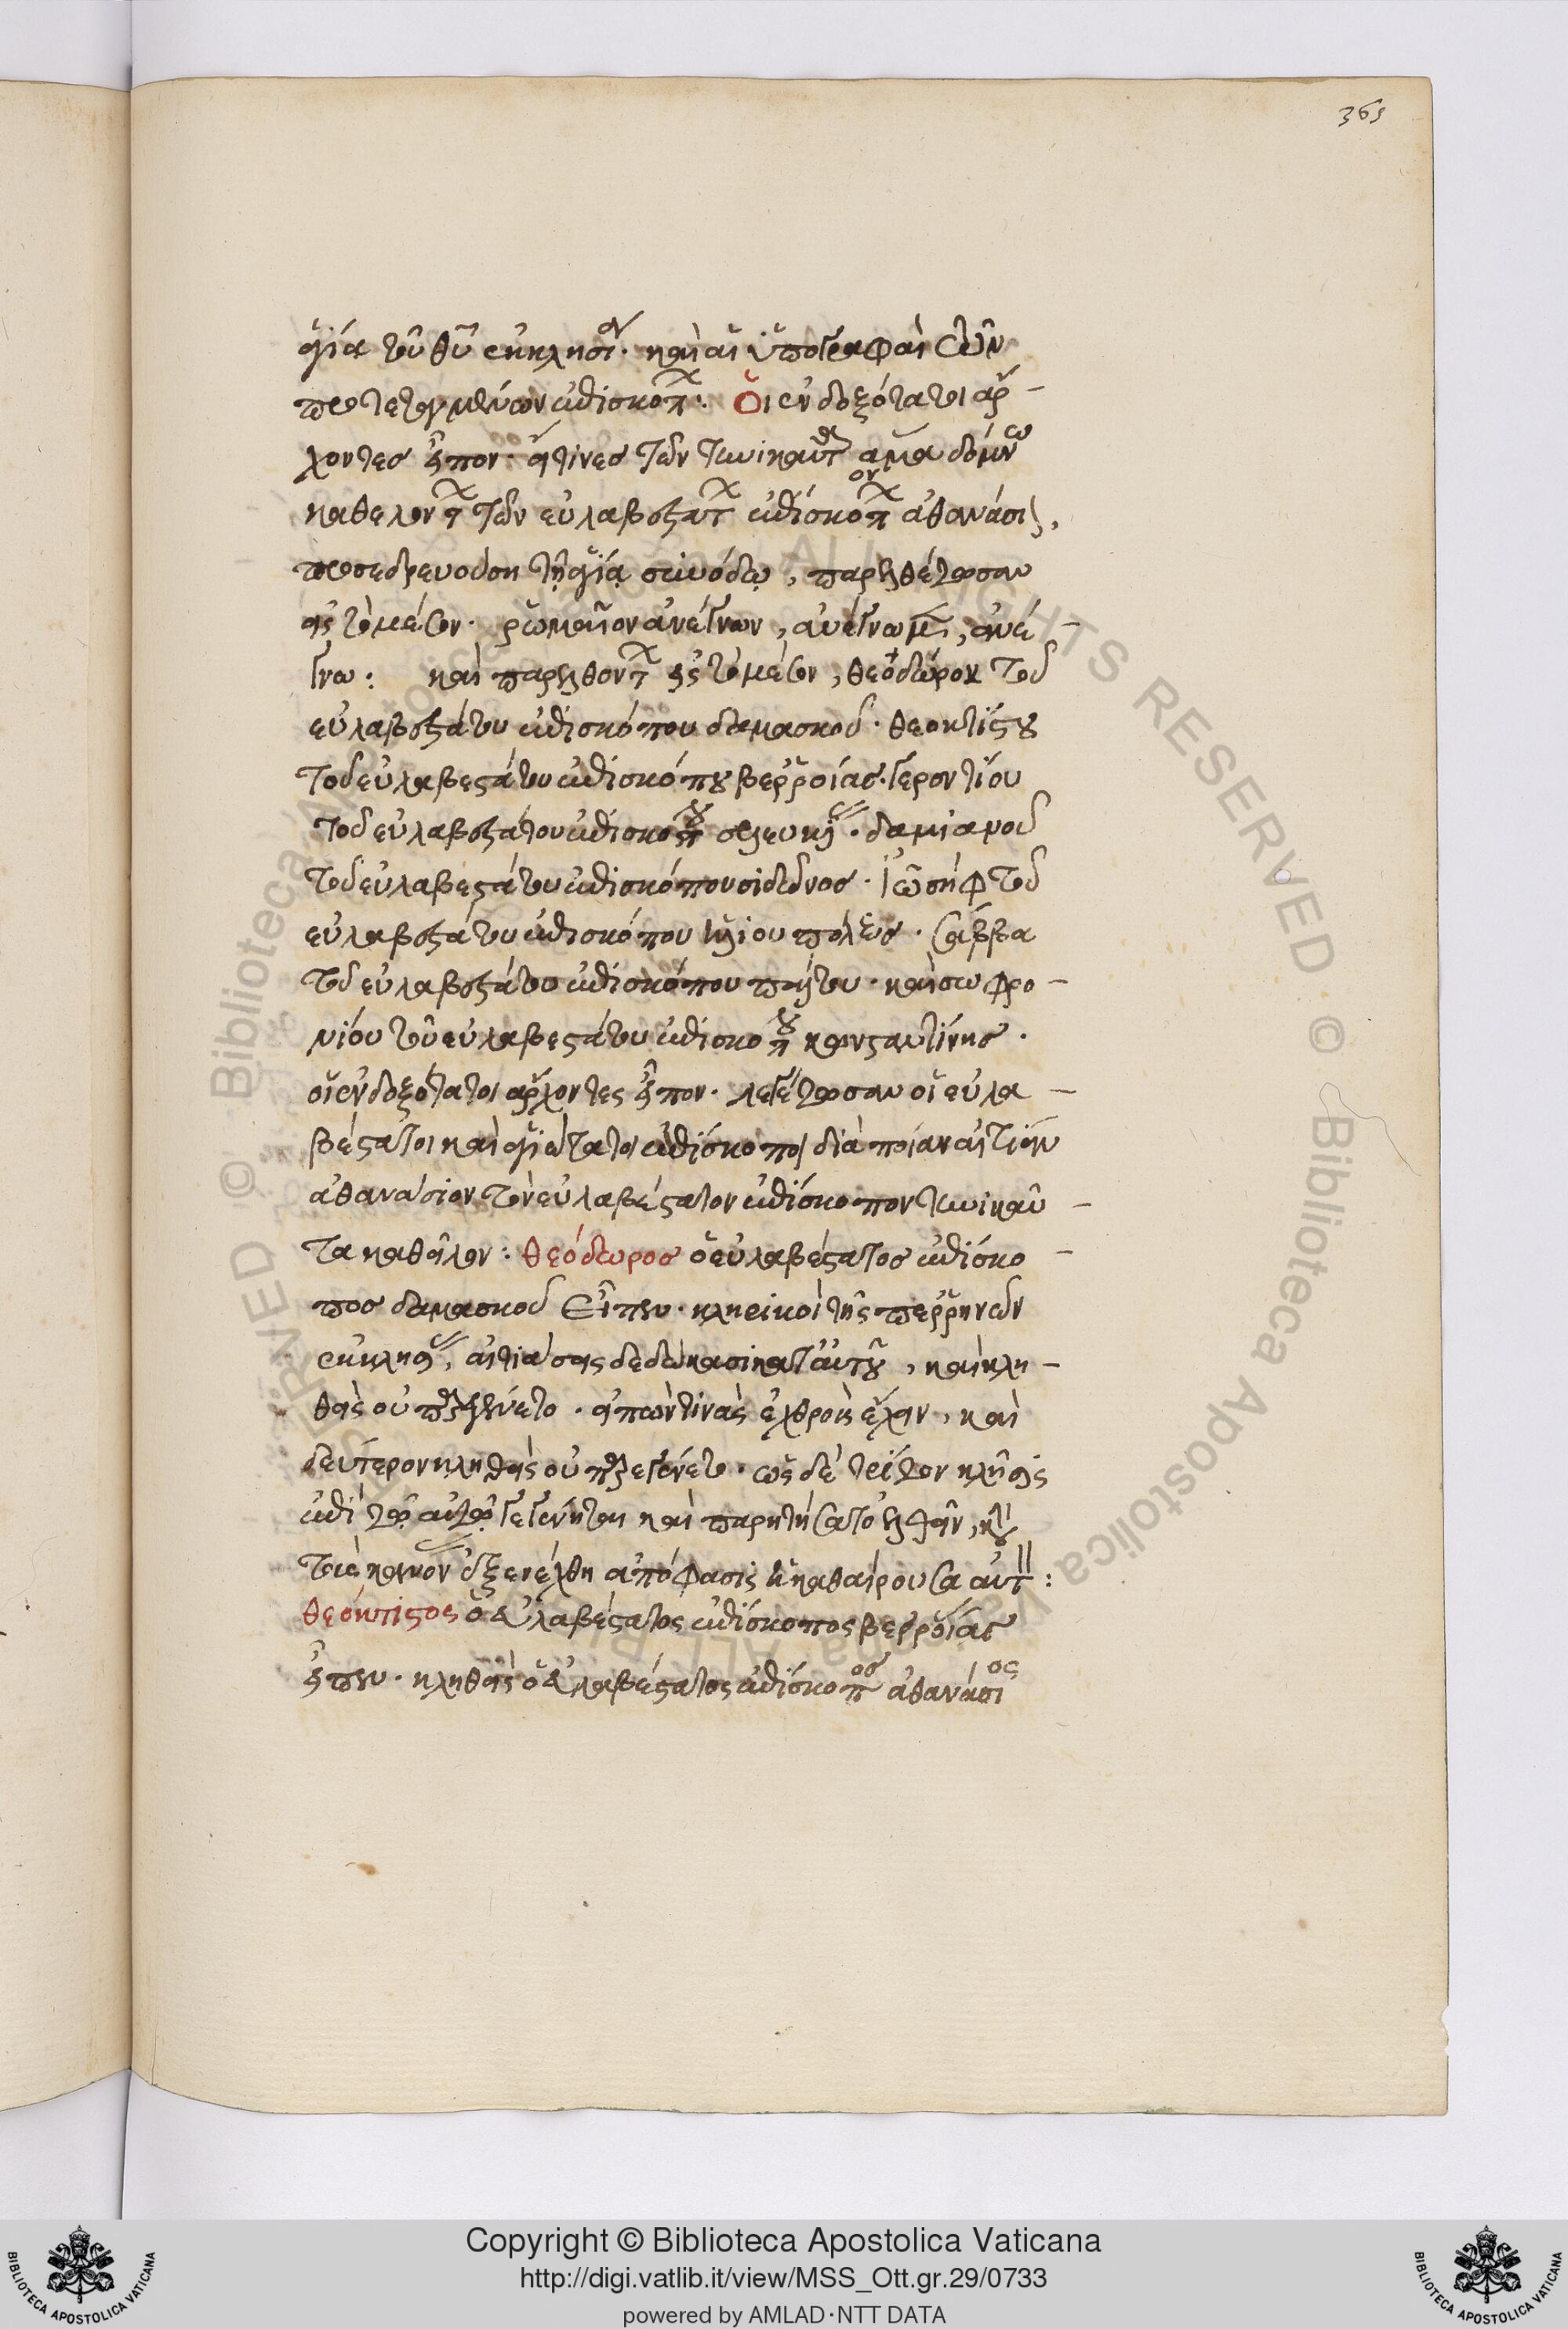 365
ἁγία τοῦ θυ ἐκκλησίαν. καὶ αἱ ὑπογραφαὶ τῶν
προτεταγμένων ἐπισκόπων. Οἱ ἐνδοξότατοι ἄρ-
χοντες εἶπον. οἵτινες τῶν τηνικαῦτα ἅμα δόμνω
καθελόντων τὸν εὐλαβεστατον ἐπισκόπων ἀθανάσιον,
προσεδρεύουσι τῇ ἁγίᾳ συνόδῳ, παρελθέτωσαν
εἰς τὸ μέσον. ῥωμαῖον ἀνέγνων, ἀνέγνωμεν, ἀνέ-
γνω: καὶ παρελθόντων εἰς τὸ μέσον, θεοδώρου τοῦ
εὐλαβεστάτου ἐπισκόπου δαμασκοῦ. θεοκτίστου
τοῦ εὐλαβεστάτου ἐπισκόπου βερροίας. γεροντίου
τοῦ εὐλαβεστάτου ἐπισκόπου σελευκείας. δαμιανοῦ
τοῦ εὐλαβεστάτου ἐπισκόπου σιδῶνος. ἰωσὴφ τοῦ
εὐλαβεστάτου ἐπισκόπου ἡλίου πόλεως. σάββα
τοῦ εὐλαβεστάτου ἐπισκόπου πάλτου. καὶ σωφρο-
νίου τοῦ εὐλαβεστάτου ἐπισκόπου κωνσταντίνης.
οἱ ἐνδοξότατοι ἄρχοντες εἶπον. λεγέτωσαν οἱ εὐλα-
βέστατοι καὶ ἁγιώτατοι ἐπίσκοποι διὰ ποίαν αἰτίαν
ἀθανάσιον τὸν εὐλαβέστατον ἐπίσκοπον τηνικαῦ-
τα καθεῖλον: θεόδωρος ὁ εὐλαβέστατος ἐπίσκο-
πος δαμασκοῦ εἶπεν. κληρικοὶ τῆς περρηνῶν
ἐκκλησίας, αἰτιάσεις δεδώκασι κατ' αὐτοῦ, καὶ κλη-
θεὶς οὐ παρεγένετο. εἰπών τινας ἐχθροὺς ἔχειν, καὶ
δεύτερον κληθεὶς οὐ παρεγένετο. ὡς δὲ τρίτον κλῆσις
ἐπὶ τῷ αὐτῷ γεγένηται καὶ παρητήσατο ἐλθεῖν, κατὰ
τοὺς κανόνας ἐξενέχθη ἀπόφασις ἡ καθαίρουσα αὐτόν:
θεόκτιστος ὁ εὐλαβέστατος ἐπίσκοπος βερροίας
εἶπεν. κληθεὶς ὁ εὐλαβέστατος ἐπίσκοπος ἀθανάσιος
Copyright © Biblioteca Apostolica Vaticana
http://digi.vatlib.it/view/MSS_Ott.gr.29/0733
powered by AMLAD·NTT DATA